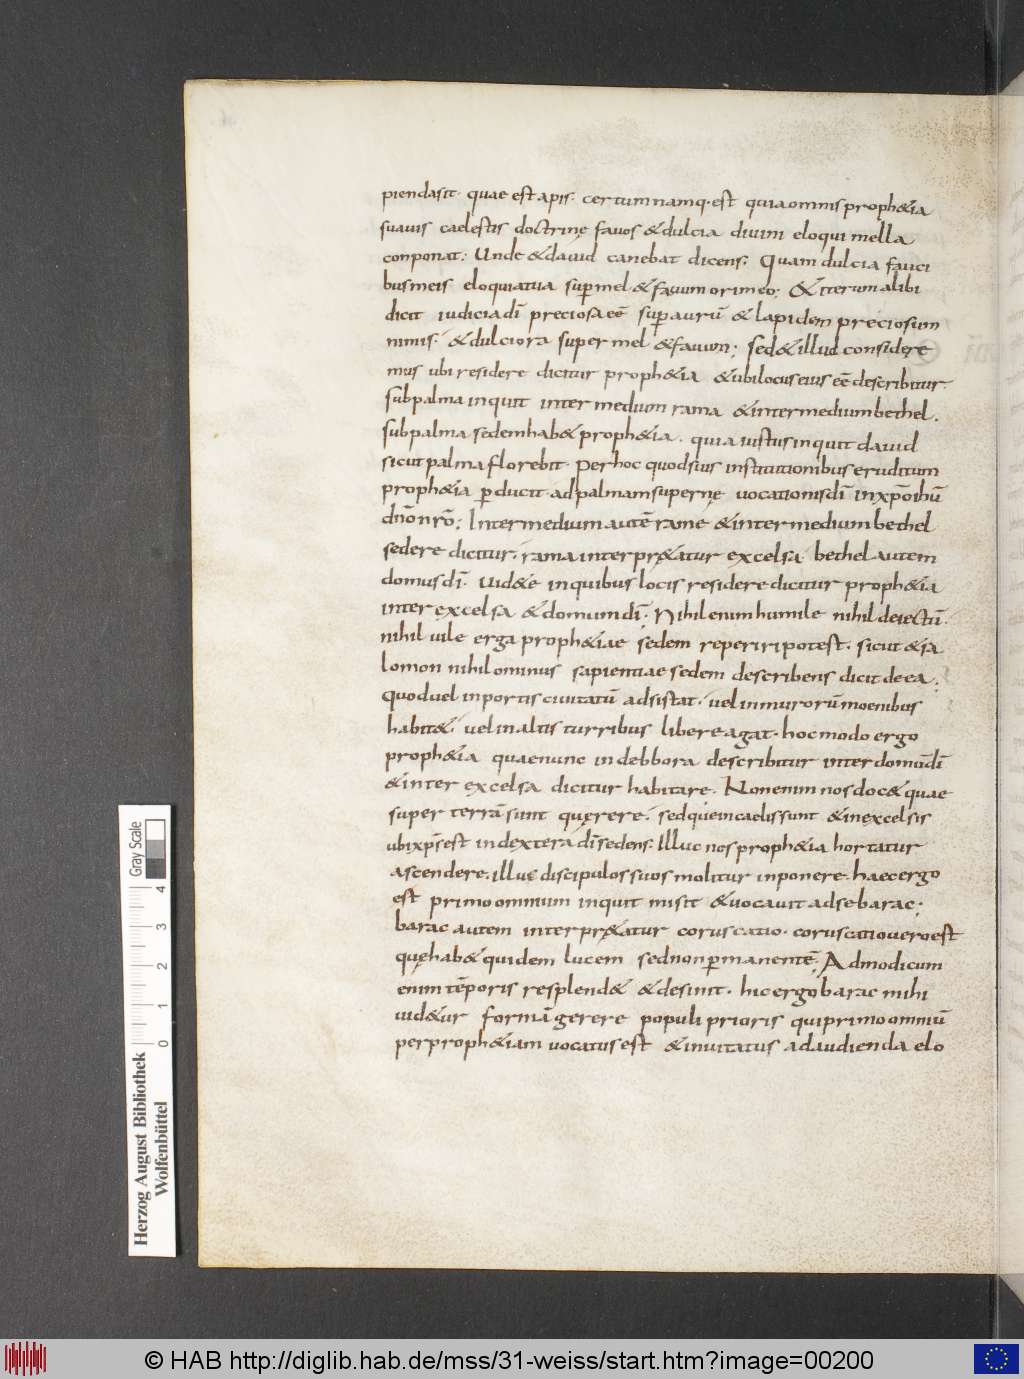 piendasit· quae est apis· certum namq· est quia omnis proph&ia
suavis caelestis doctrinę favos & dulcia divini eloqui mella
conponat; Unde & david canebat dicens; Quam dulcia fauci
bus meis eloquia tua sup̄ mel & favum ori meo; & iterum alibi
dicit iudicia dī preciosa eē sup̄ aurū & lapidem preciosum
nimis· & dulciora super mel & favum; sed & illud considere
mus ubi residere dicitur proph&ia & ubi locus eius eē describitur·
sub palma inquit inter medium rama & inter medium bethel·
sub palma sedem hab& proph&ia· quia iustus inquit david
sicut palma florebit· per hoc quod suis institutionibus eruditum
proph&ia p̄ducit ad palmam supernę vocationis dī in xp̄o ihū
dn̄o nr̄o; Inter medium autē ramę & inter medium bethel
sedere dicitur· rama interpr&atur excelsa bethel autem
domus dī· vid& e in quibus locis residere dicitur proph&ia
inter excelsa & domum dī; Nihil enim humile nihil deiectū·
nihil vile erga proph&iae sedem reperiri potest· sicut & sa
lomon nihilominus sapientiae sedem describens dicit de ea;
quod vel in portis civitatū adsistat· vel in murorū moenibus
habit&· vel in altis turribus libere agat· hoc modo ergo
proph&ia quae nunc in debbora describitur inter domū dī
& inter excelsa dicitur habitare· Non enim nos doc& quae
super terrā sunt quęrere· sed quę in caelis sunt & in excelsis
ubi xp̄s est in dextera dī sedens; Illuc nos proph&ia hortatur
ascendere· illuc discipulos suos molitur inponere· haec ergo
est primo omnium inquit misit & vocavit ad se barac;
barac autem interpr&atur coruscatio· coruscatio vero est
quę hab& quidem lucem sed non p̄manentē; Ad modicum
enim tēporis resplend& & desinit· hic ergo barac mihi
vid&ur formā gerere populi prioris qui primo omniū
per proph&iam vocatus est & invitatus ad audienda elo
Herzog August Bibliothek
Wolfenbüttel
0 1 2 3 4
Gray Scale
© HAB http://diglib.hab.de/mss/31-weiss/start.htm?image=00200